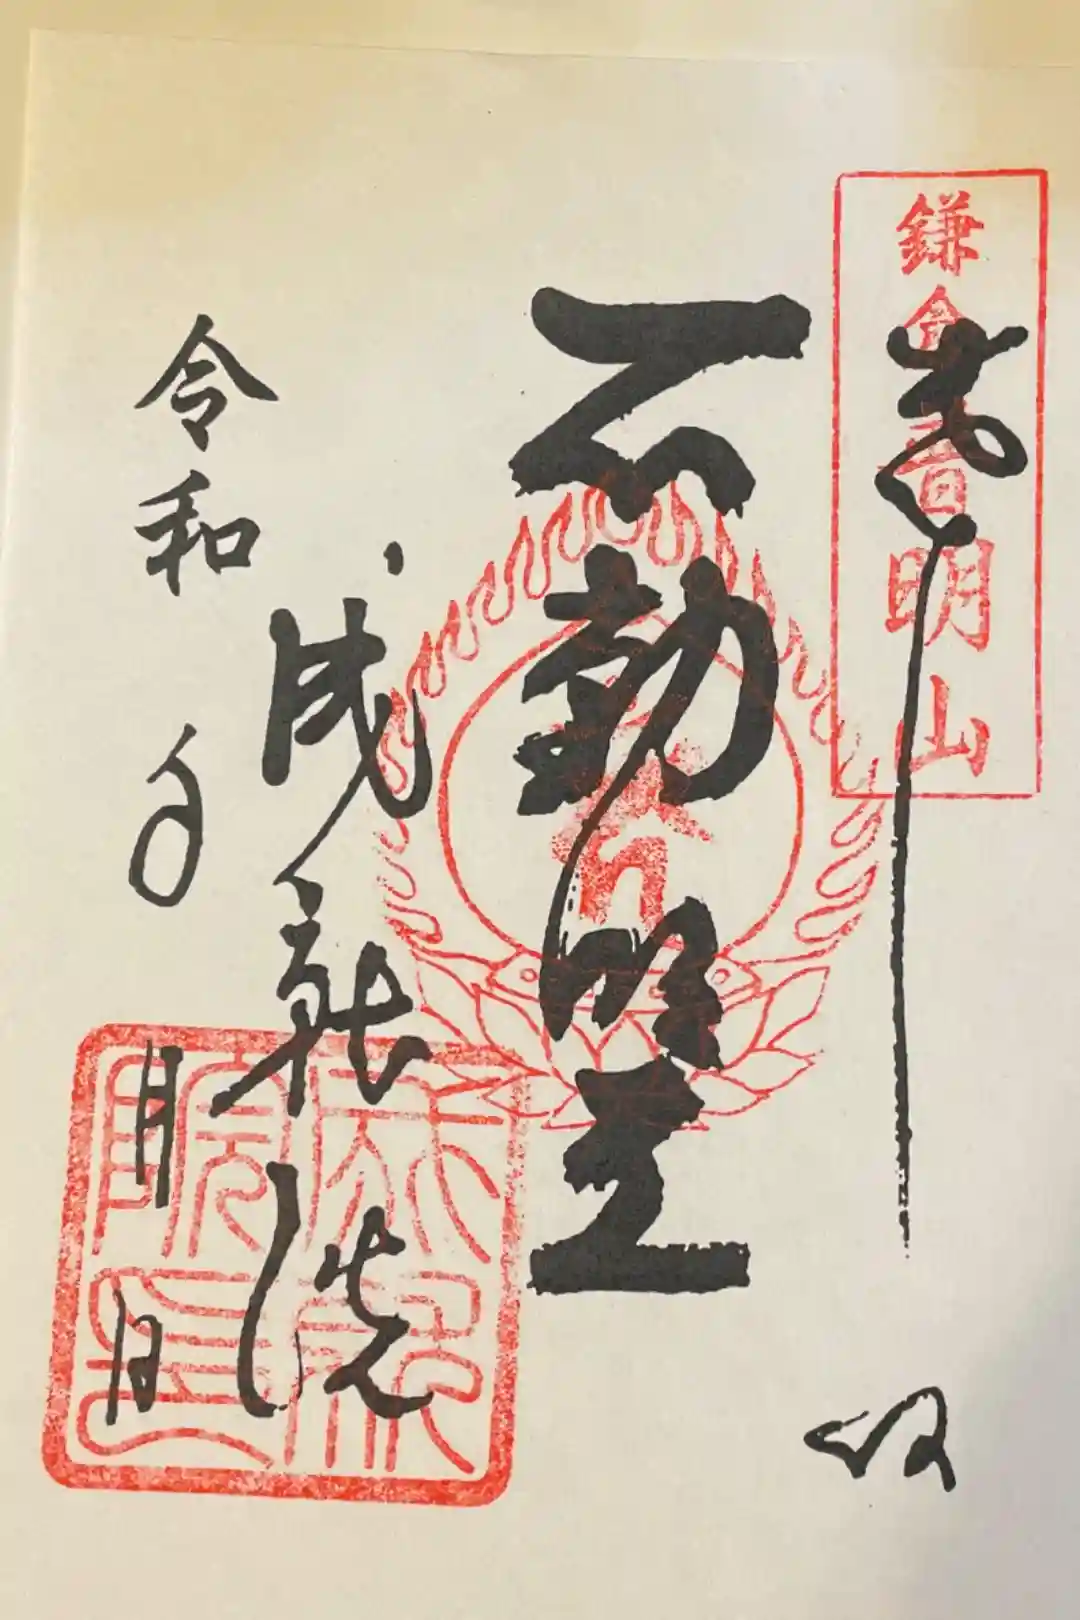 奉拝
鎌倉普明山
不動明王
成就院
令和 年 月 日